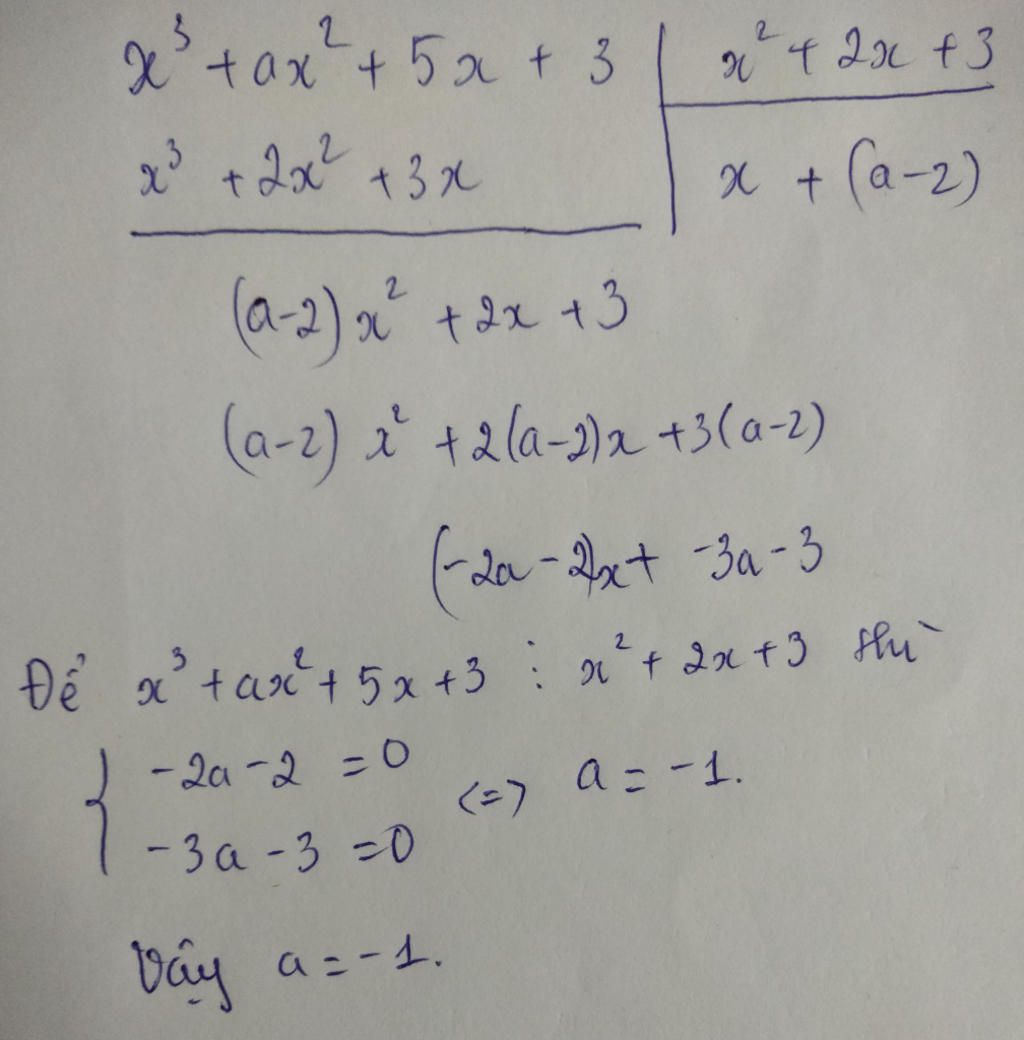 x³ + ax² + 5x + 3 | x² + 2x + 3
x³ + 2x² + 3x | x + (a-2)
(a-2)x² + 2x + 3
(a-2) x² + 2(a-2)x + 3(a-2)
(-2a - 2)x + -3a - 3
Để x³ + ax² + 5x + 3 ⋮ x² + 2x + 3 thì
{ -2a - 2 = 0
-3a - 3 = 0 <=> a = -1.
Vậy a = -1.